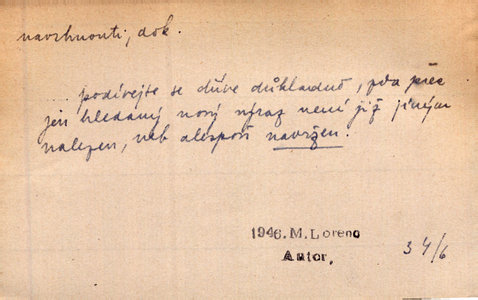 navrhnouti, dok.
podívejte se dříve důkladně, zda přec
jen hledaný nový výraz není již jiným
nalezen, neb alespoň navržen.
1946. M. Loreno
Autor,
34/6